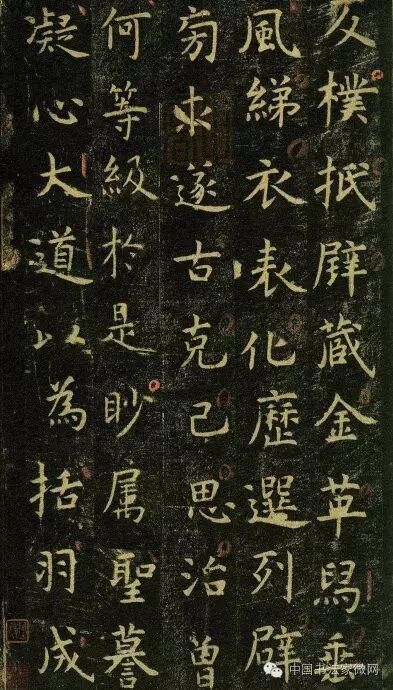 反樸抵璧藏金革舄垂
風綈衣表化歷選列辟
旁求遂古克己思治曾
何等級於是眇属聖謩
凝心大道以為括羽成
中国书法家微网